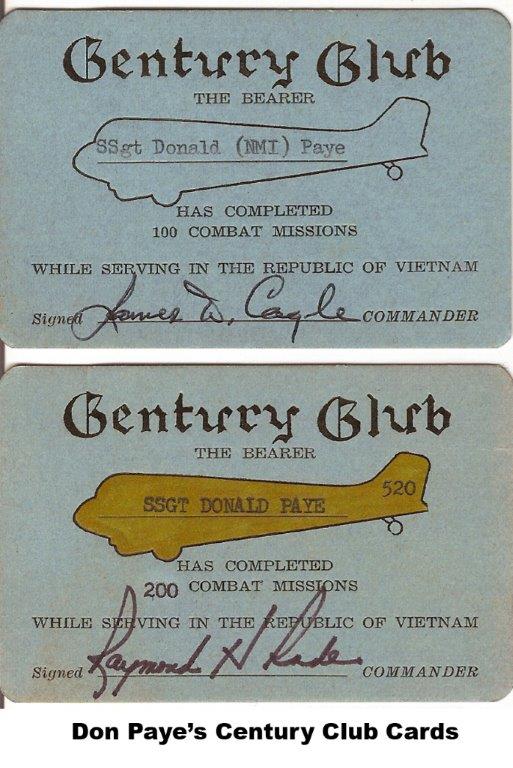 Century Club
THE BEARER
SSgt Donald (NMI) Paye
HAS COMPLETED
100 COMBAT MISSIONS
WHILE SERVING IN THE REPUBLIC OF VIETNAM
Signed James W. Cagle COMMANDER
Century Club
THE BEARER
520
SSGT DONALD PAYE
HAS COMPLETED
200 COMBAT MISSIONS
WHILE SERVING IN THE REPUBLIC OF VIETNAM
Signed Raymond H COMMANDER
Don Paye's Century Club Cards